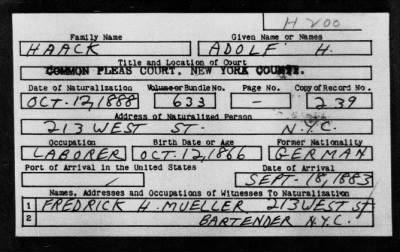 H 200
Family Name Given Name or Names
HAACK ADOLF H.
Title and Location of Court
COMMON PLEAS COURT, NEW YORK COUNTY.
Date of Naturalization Volume or Bundle No. Page No. Copy of Record No.
OCT. 12, 1888 633 - 239
Address of Naturalized Person
213 WEST ST. N.Y.C.
Occupation Birth Date or Age Former Nationality
LABORER OCT. 12, 1866 GERMAN
Port of Arrival in the United States Date of Arrival
- SEPT. 18, 1883
Names, Addresses and Occupations of Witnesses To Naturalization
1 FREDRICK H. MUELLER 213 WEST ST
2 BARTENDER N.Y.C.